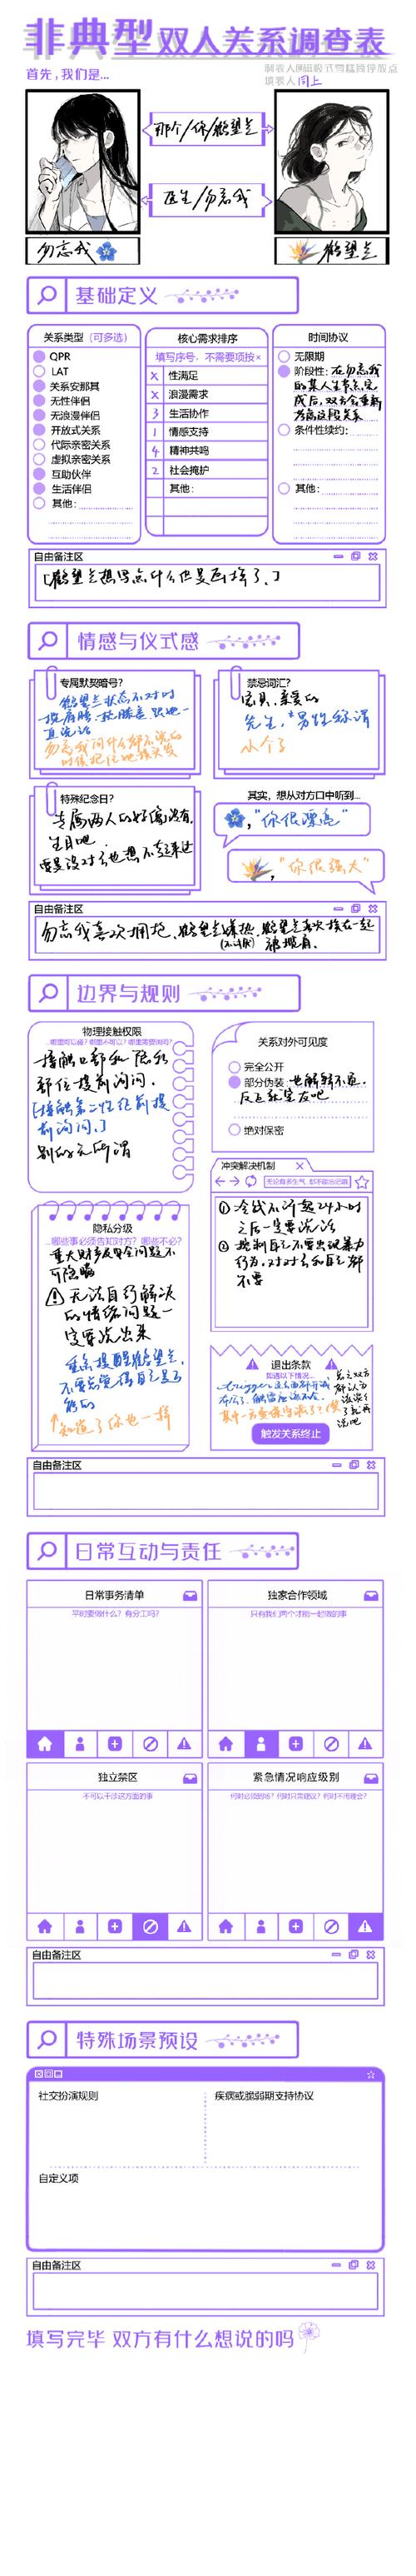 非典型双人关系调查表
首先,我们是...
填表人同上
那个/你/鹤望兰
医生/勿忘我
勿忘我
鹤望兰
基础定义
关系类型（可多选）
QPR
LAT
关系安那其
无性伴侣
无浪漫伴侣
开放式关系
代际亲密关系
虚拟亲密关系
互助伙伴
生活伴侣
其他:
核心需求排序
填写序号，不需要项按×
X 性满足
X 浪漫需求
3 生活协作
1 情感支持
4 精神共鸣
2 社会掩护
其他:
时间协议
无限期
阶段性: 在勿忘我
的某人生节点完
成后,双方会重新
考虑这段关系
条件性续约:
其他:
自由备注区
[鹤望兰想写点什么但是画掉了.]
情感与仪式感
专属默契暗号?
鹤望兰状态不对时
直说话
勿忘我问什么都不说的
禁忌词汇?
宝贝,亲爱的
先生,*男性称谓
小个子
特殊纪念日?
专属两人的好像没有.
生日吧
要是没对方也想不起来过
其实，想从对方口中听到...
,"你很漂亮"
,"你很强大"
自由备注区
勿忘我喜欢拥抱,鹤望兰嫌热.鹤望兰喜欢挨在一起
被揽肩.
边界与规则
物理接触权限
...哪里可以碰？哪里不可以？哪里需要询问？
接触口部和隐私
部位提前询问.
[接触第二性征前提
前询问.]
别的无所谓
关系对外可见度
完全公开
部分伪装: 也解释不通.
反正就室友吧
绝对保密
冲突解决机制
无论有多生气，都不能忘记哦
① 冷战不许超24小时
之后一定要说话
② 控制自己不要出现暴力
行为.对对方和自己都
不要
隐私分级
...哪些事必须告知对方？哪些不必？
重大财务及安全问题不
可隐瞒
无法自行解决
的情绪问题一
定要说出来
重点提醒鹤望兰,
不要总觉得自己是万
能的
↑知道了你也一样
退出条款
如遇以下情况...
触发关系终止
自由备注区
日常互动与责任
日常事务清单
平时要做什么？有分工吗？
独家合作领域
只有我们两个才能一起做的事
独立禁区
不可以干涉这方面的事
紧急情况响应级别
何时必须到场？何时只需建议？何时不用理会？
自由备注区
特殊场景预设
社交扮演规则
疾病或脆弱期支持协议
自定义项
自由备注区
填写完毕 双方有什么想说的吗